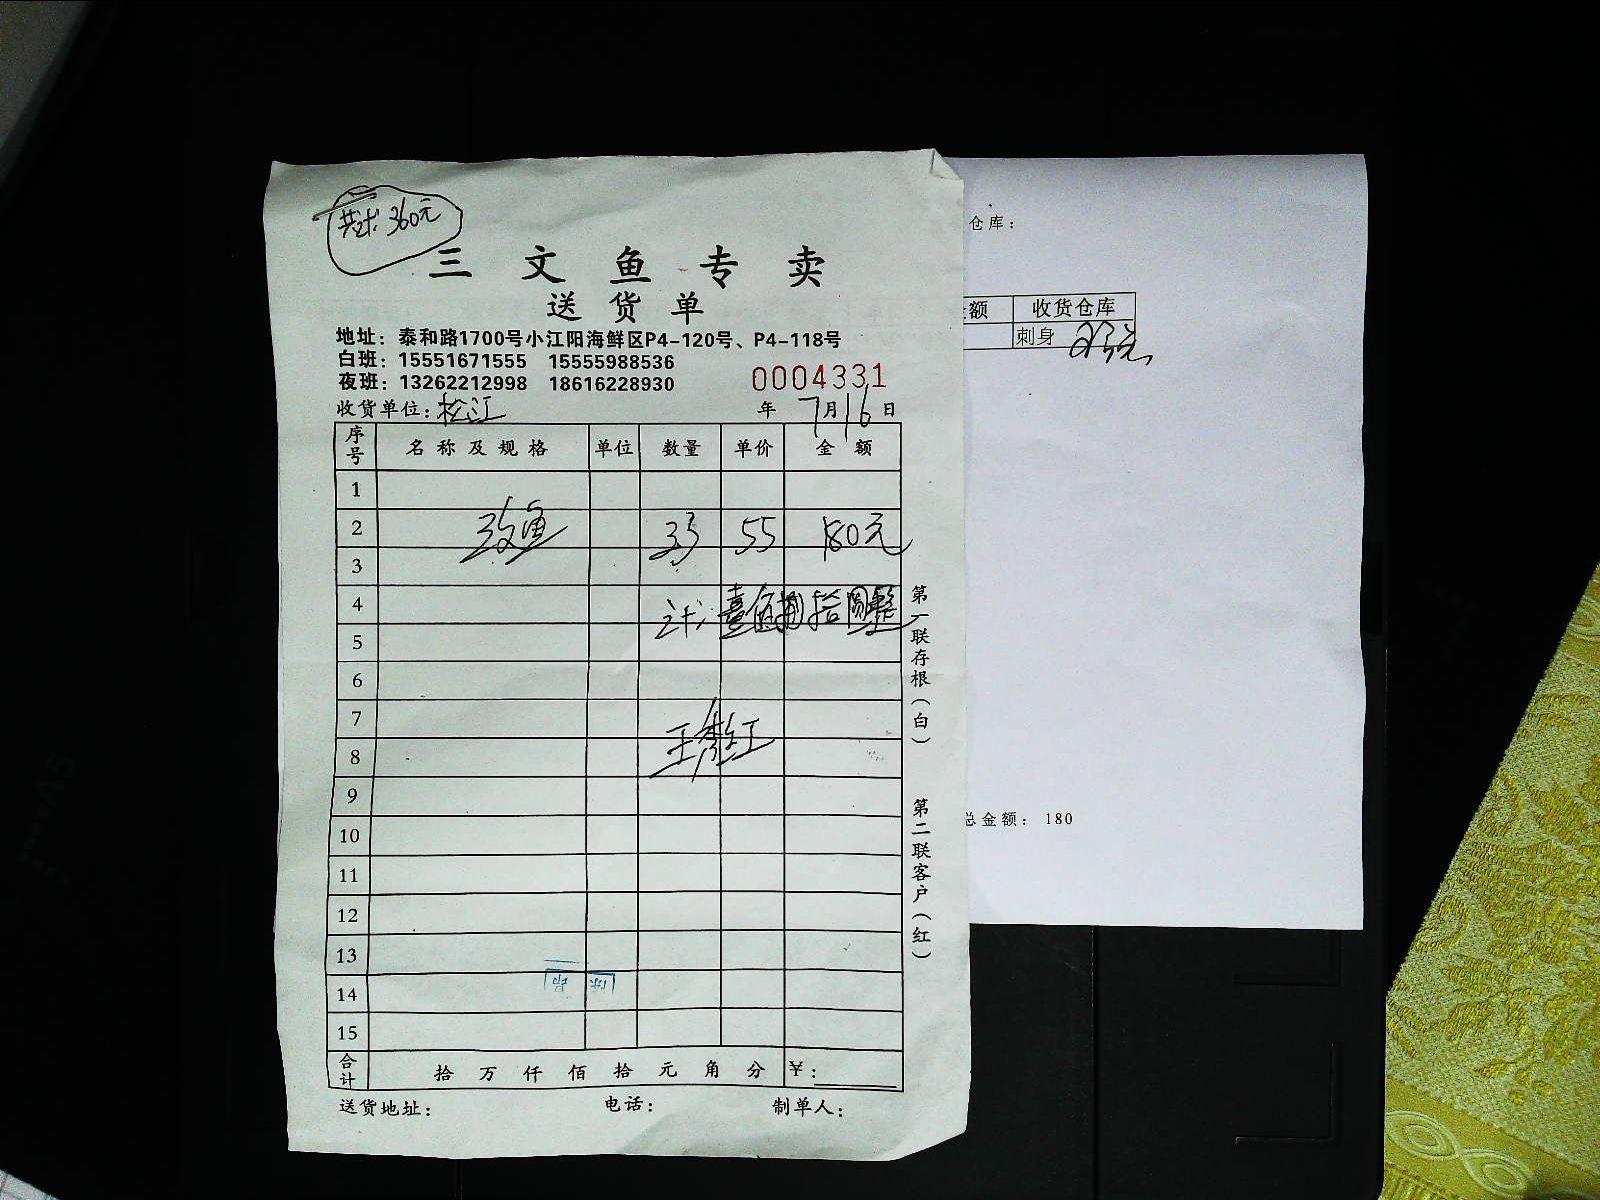 共计:360元
三文鱼专卖
送货单
地址：泰和路1700号小江阳海鲜区P4-120号、P4-118号
白班：15551671555 15555988536
夜班：13262212998 18616228930
0004331
收货单位：松江 年 7月16日
序号 名称及规格 单位 数量 单价 金额
1
2 三文鱼 33 55 180元
3
4 计：壹佰捌拾圆整
5
6
7
8 王秀红
9
10
11
12
13
14
15
合计 拾万仟佰拾元角分 ¥：
送货地址： 电话： 制单人：
第一联存根（白）
第二联客户（红）
仓库：
额 收货仓库
刺身
总金额： 180